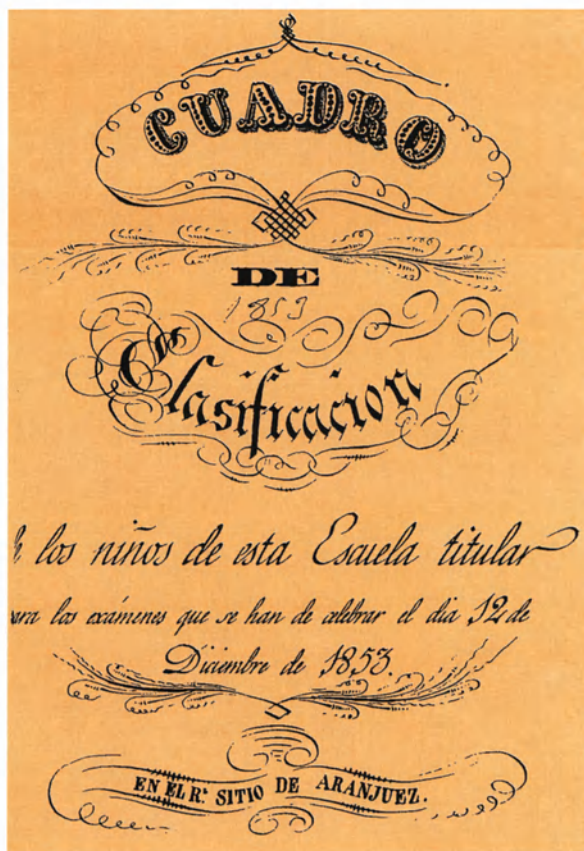 CUADRO
DE
1853
Clasificacion
los niños de esta Escuela titular
los exámenes que se han de celebrar el dia 12 de
Diciembre de 1853.
EN EL R.ˡ SITIO DE ARANJUEZ.